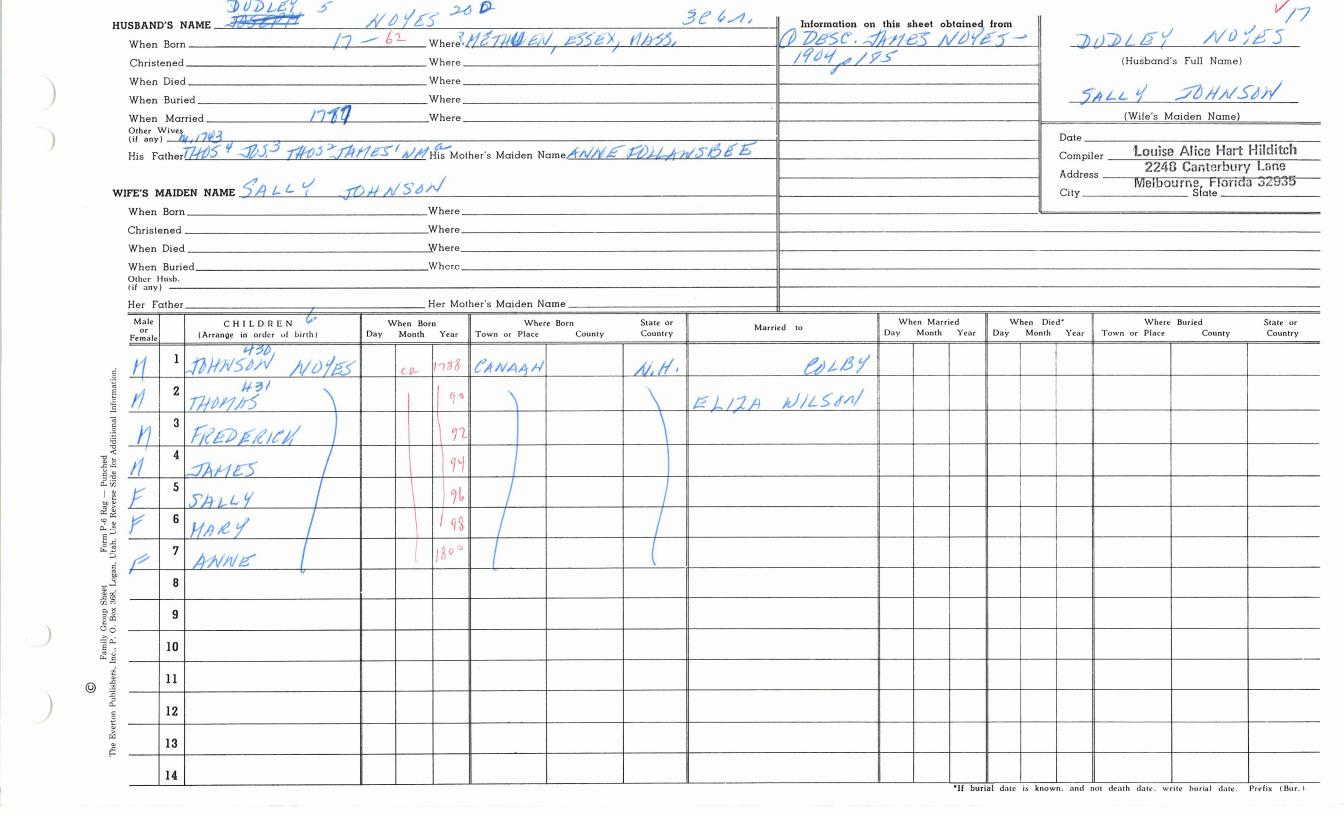 DUDLEY 5
HUSBAND'S NAME JOSEPH NOYES 20 D
When Born 17 - 62 Where ? METHUEN, ESSEX, MASS.
Christened Where
When Died Where
When Buried Where
When Married 1787 Where
Other Wives
(if any) m. 1743
His Father THOS 4 JOS. 3 THOS 2 JAMES 1 His Mother's Maiden Name ANNE FOLLANSBEE
WIFE'S MAIDEN NAME SALLY JOHNSON
When Born Where
Christened Where
When Died Where
When Buried Where
Other Husb.
(if any)
Her Father Her Mother's Maiden Name
Information on this sheet obtained from
① DESC. JAMES NOYES -
1904 p 195
17
DUDLEY NOYES
(Husband's Full Name)
SALLY JOHNSON
(Wife's Maiden Name)
Date
Compiler Louise Alice Hart Hilditch
Address 2248 Canterbury Lane
Melbourne, Florida 32935
City State
Male or Female CHILDREN 6 (Arrange in order of birth) When Born Day Month Year Where Born Town or Place County State or Country Married to When Married Day Month Year When Died* Day Month Year Where Buried Town or Place County State or Country
430
M 1 JOHNSON NOYES ca 1788 CANAAN N.H. COLBY
431
M 2 THOMAS 90 ELIZA WILSON
M 3 FREDERICK 92
M 4 JAMES 94
F 5 SALLY 96
F 6 MARY 98
F 7 ANNE 1800
8
9
10
11
12
13
14
*If burial date is known, and not death date, write burial date. Prefix (Bur.)
Family Group Sheet Form P-6 Rag — Punched
© The Everton Publishers, Inc., P. O. Box 368, Logan, Utah. Use Reverse Side for Additional Information.